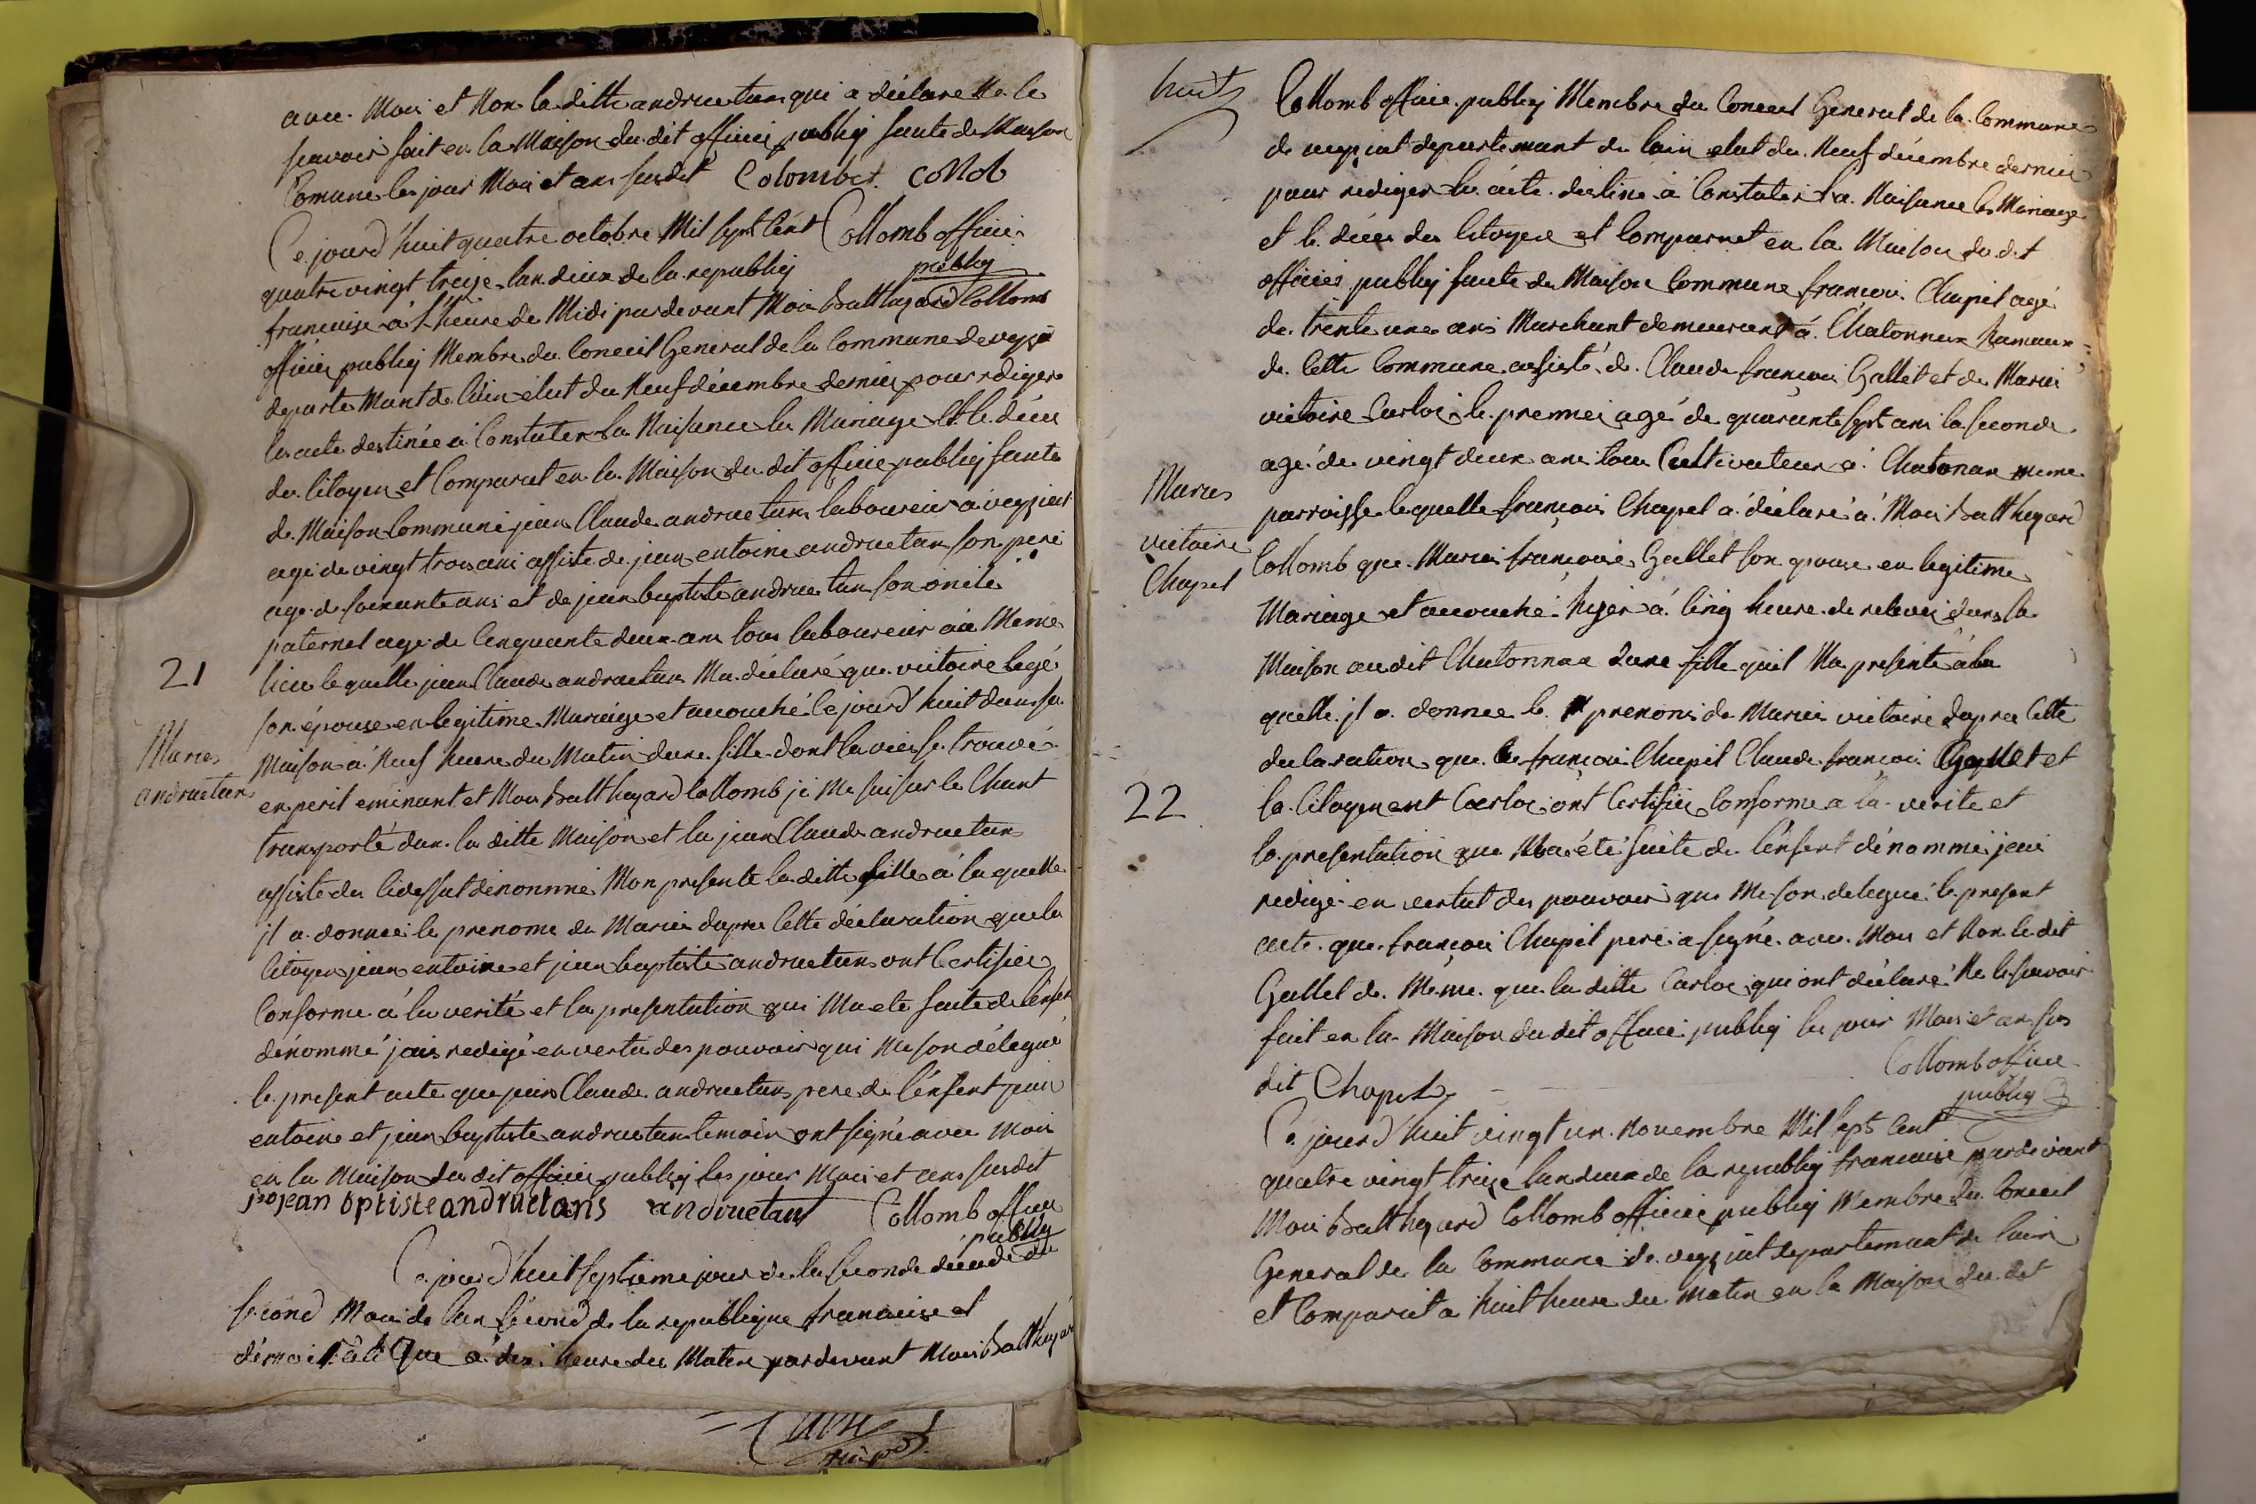 avec Moi et Non la ditte andruetan qui a déclare Ne le
scavoir fait en la Maison du dit officier publiq faute de Maison
Comune les jour Moi et ans susdit Colombet Collob
Ce jourd'huit quatre octobre Mil sept Cent Collomb officier
quatre vingt treize lan deux de la republiq publiq
francaise à l'heure de Midi pardevant Moi Balthazard Collomb
officier publiq Membre du Conceil General de la Commune de veyziat
departemant de l'ain élut du Neuf décembre dernier pour rediger
les acte destinée à Constater la Naisance les Mariage et le déces
des Citoyen et Comparut en la Maison du dit officier publiq faute
de Maison Commune jean Claude andruetan laboureur à veyziat
agé de vingt trois ans assisté de jean entoine andruetan son pere
age de soixante ans et de jean baptiste andruetan son oncle
paternel age de Cinquante deux ans tous laboureur au Meme
lieu lequelle jean Claude andruetan Ma déclaré que victoire
21
son épouse en legitime Mariage et accouché Ce jourd'huit dans sa
Maison à Neuf heure du Matin dune fille dont la vie se trouve
Marie
andruetan
en peril eminant et Moi Balthazard Collomb je Me suis sur le Chant
transporté dans la ditte Maison et la jean Claude andruetan
assisté des Cidessut dénommé Mon presenté la ditte fille à la quelle
il a donnée le prenome de Marie dapres Cette déclaration que les
Citoyen jean entoine et jean baptiste andruetan ont Certifiée
Conforme à la verité et la presentation qui Ma eté faite de l'enfent
dénommé jais redigé en vertu des pouvoir qui Me son délegué
le present acte que jean Claude andruetan pere de l'enfent jean
entoine et jean baptiste andruetan temoin ont signé avec Moi
en la Maison du dit officier publiq les jour Moi et ans susdit
jean bptiste andruetans andruetans Collomb officier
publiq
Ce jourd'huit septieme jour de la seconde décade du
second Moi de lan second de la republique francaise et
à dix heure du Matin pardevant Moi Balthazar
huit
Collomb officier publiq Membre du Conceil General de la Commune
de veyziat departemant de lain elut du Neuf décembre dernier
pour rediger les acte destine à Constater la Naisance les Mariage
et le déces des Citoyen et Comparut en la Maison du dit
officier publiq faute de Maison Commune francois Chapel agé
de trente une ans Marchant demeurant à Chatonnax hameau
de Cette Commune assisté de Claude francois Gallet et de Marie
victoire Carloz le premier agé de quarante sept ans la seconde
agé de vingt deux ans tous Cultivateur à Chatonax meme
parroisse lequelle francois Chapel a déclaré à Moi Balthazard
Marie
victoire
Chapel
Collomb que Marie francoise Gallet son epouse en legitime
Mariage et accouché hyer à Cinq heure de relevé dans la
Maison audit Chatonnax dune fille quil Ma presenté à la
quelle il a donnee le prenoms de Marie victoire dapres Cette
declaration que francois Chapel Claude francois Gallet et
22
la Citoyenent Carloz ont Certifiée Conforme à la verite et
la presentation que Ma été faite de l'enfent dénommé jai
redigé en vertut des pouvoir qui Me son delegué le present
acte que francois Chapel pere a signé avec Moi et Non le dit
Gallet de Meme que la ditte Carloz qui ont déclaré Ne le scavoir
fait en la Maison du dit officier publiq les jour Moi et an sus
dit Chapel Collomb officier
publiq
Ce jourd'huit vingt un Novembre Mil sept Cent
quatre vingt treize lan deux de la republiq francaise pardevant
Moi Balthazard Collomb officier publiq Membre du Conceil
General de la Commune de veyziat departemant de lain
et Comparut à huit heure du Matin en la Maison du dit